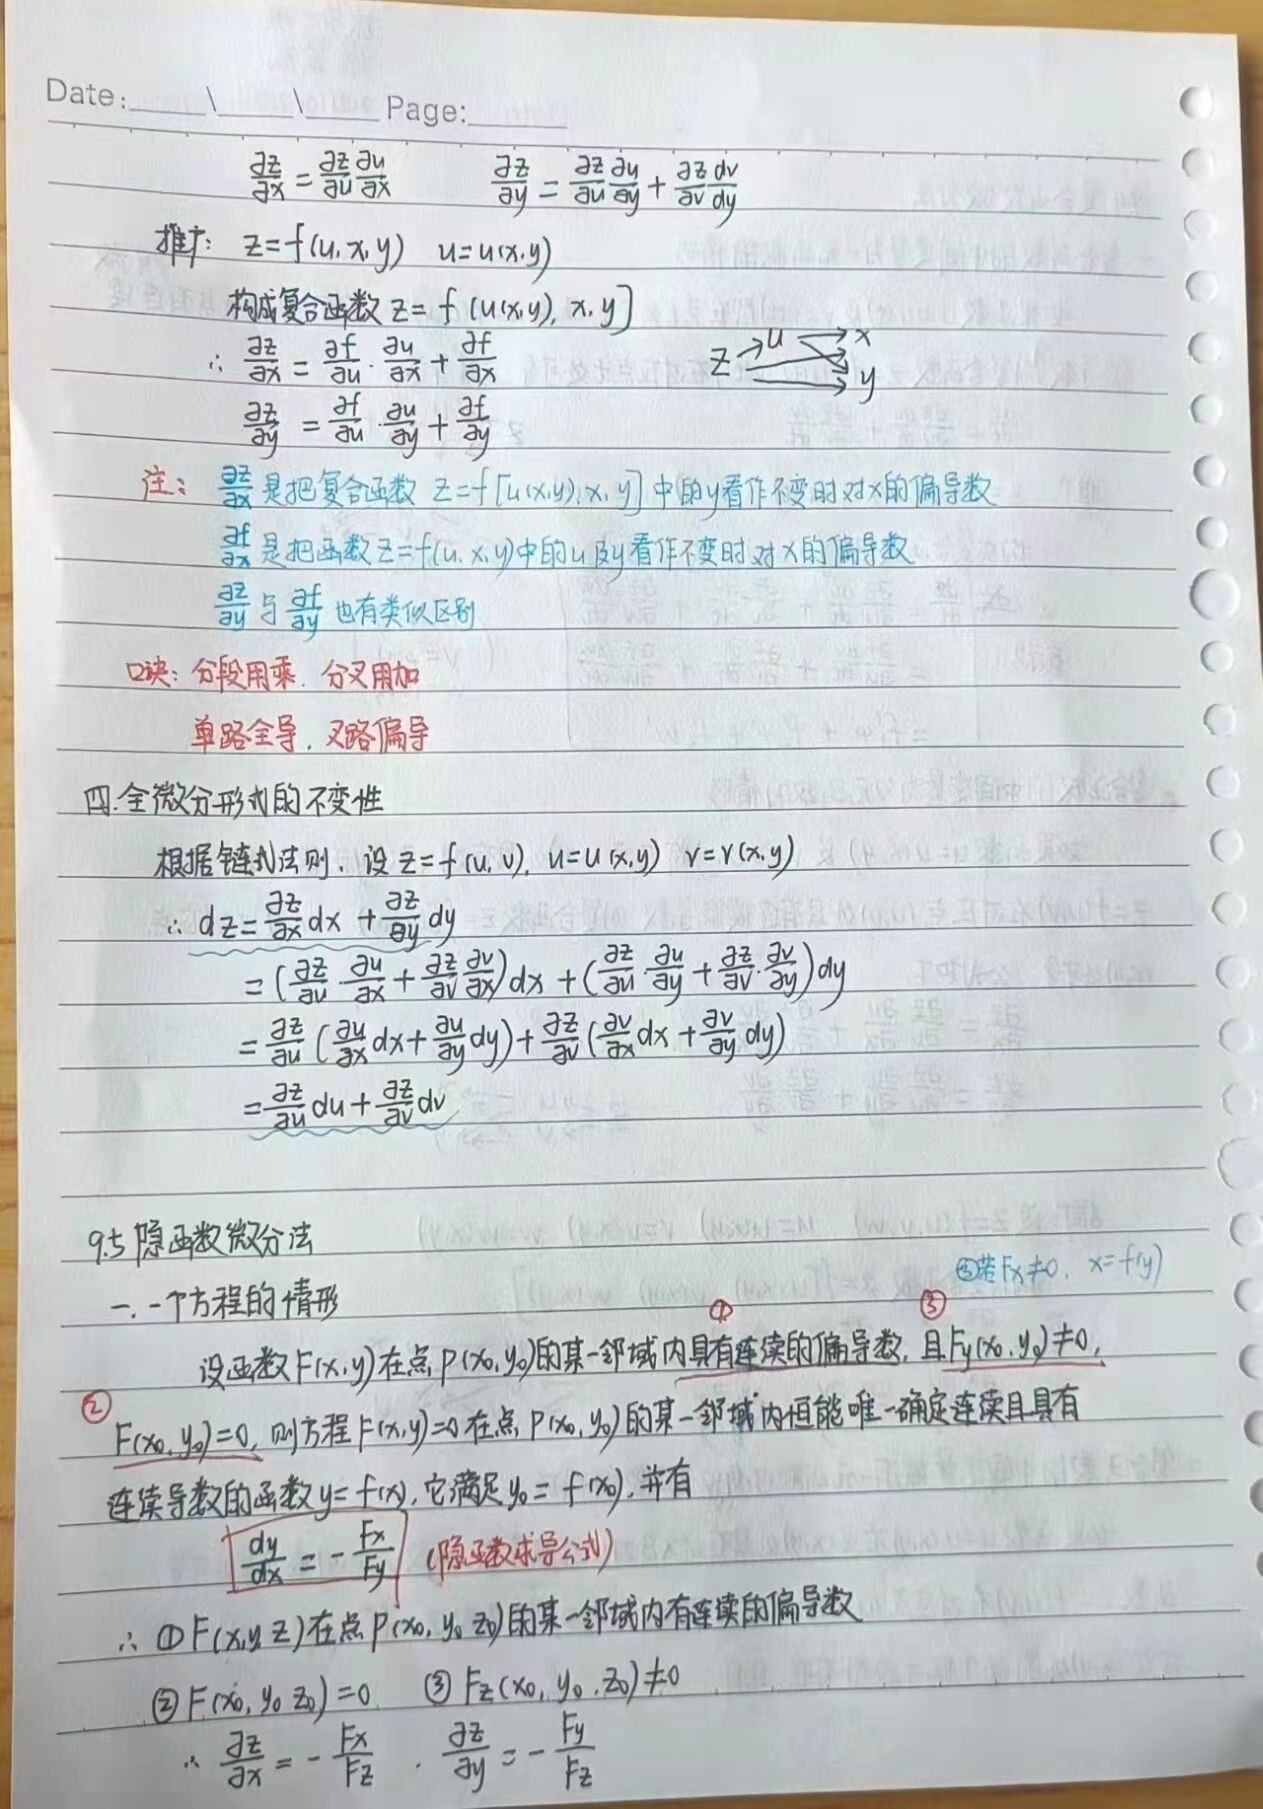 Date:____\____\____ Page:____
∂z/∂x = ∂z/∂u ∂u/∂x    ∂z/∂y = ∂z/∂u ∂u/∂y + ∂z/∂v dv/dy
推广: z=f(u,x,y)  u=u(x,y)
构成复合函数 z=f(u(x,y), x, y]
∴ ∂z/∂x = ∂f/∂u · ∂u/∂x + ∂f/∂x    z → u → x y
∂z/∂y = ∂f/∂u · ∂u/∂y + ∂f/∂y
注: ∂z/∂x 是把复合函数 z=f[u(x,y),x,y] 中的y看作不变时对x的偏导数
∂f/∂x 是把函数z=f(u,x,y)中的u及y看作不变时对x的偏导数
∂z/∂y 与 ∂f/∂y 也有类似区别
口诀: 分段用乘, 分叉用加
单路全导, 叉路偏导
四.全微分形式的不变性
根据链式法则, 设 z=f(u,v), u=u(x,y) v=v(x,y)
∴ dz = ∂z/∂x dx + ∂z/∂y dy
= (∂z/∂u · ∂u/∂x + ∂z/∂v ∂v/∂x)dx + (∂z/∂u · ∂u/∂y + ∂z/∂v · ∂v/∂y)dy
= ∂z/∂u (∂u/∂x dx + ∂u/∂y dy) + ∂z/∂v (∂v/∂x dx + ∂v/∂y dy)
= ∂z/∂u du + ∂z/∂v dv
9.5 隐函数微分法
③若Fx≠0, x=f(y)
一.一个方程的情形
① ③
设函数F(x,y)在点P(x₀,y₀)的某一邻域内具有连续的偏导数, 且Fy(x₀,y₀)≠0,
② F(x₀,y₀)=0, 则方程F(x,y)=0在点P(x₀,y₀)的某一邻域内恒能唯一确定连续且具有
连续导数的函数y=f(x), 它满足y₀=f(x₀), 并有
dy/dx = - Fx/Fy (隐函数求导公式)
∴ ①F(x,y,z)在点P(x₀,y₀,z₀)的某一邻域内有连续的偏导数
②F(x₀,y₀,z₀)=0. ③Fz(x₀,y₀,z₀)≠0
∴ ∂z/∂x = - Fx/Fz . ∂z/∂y = - Fy/Fz